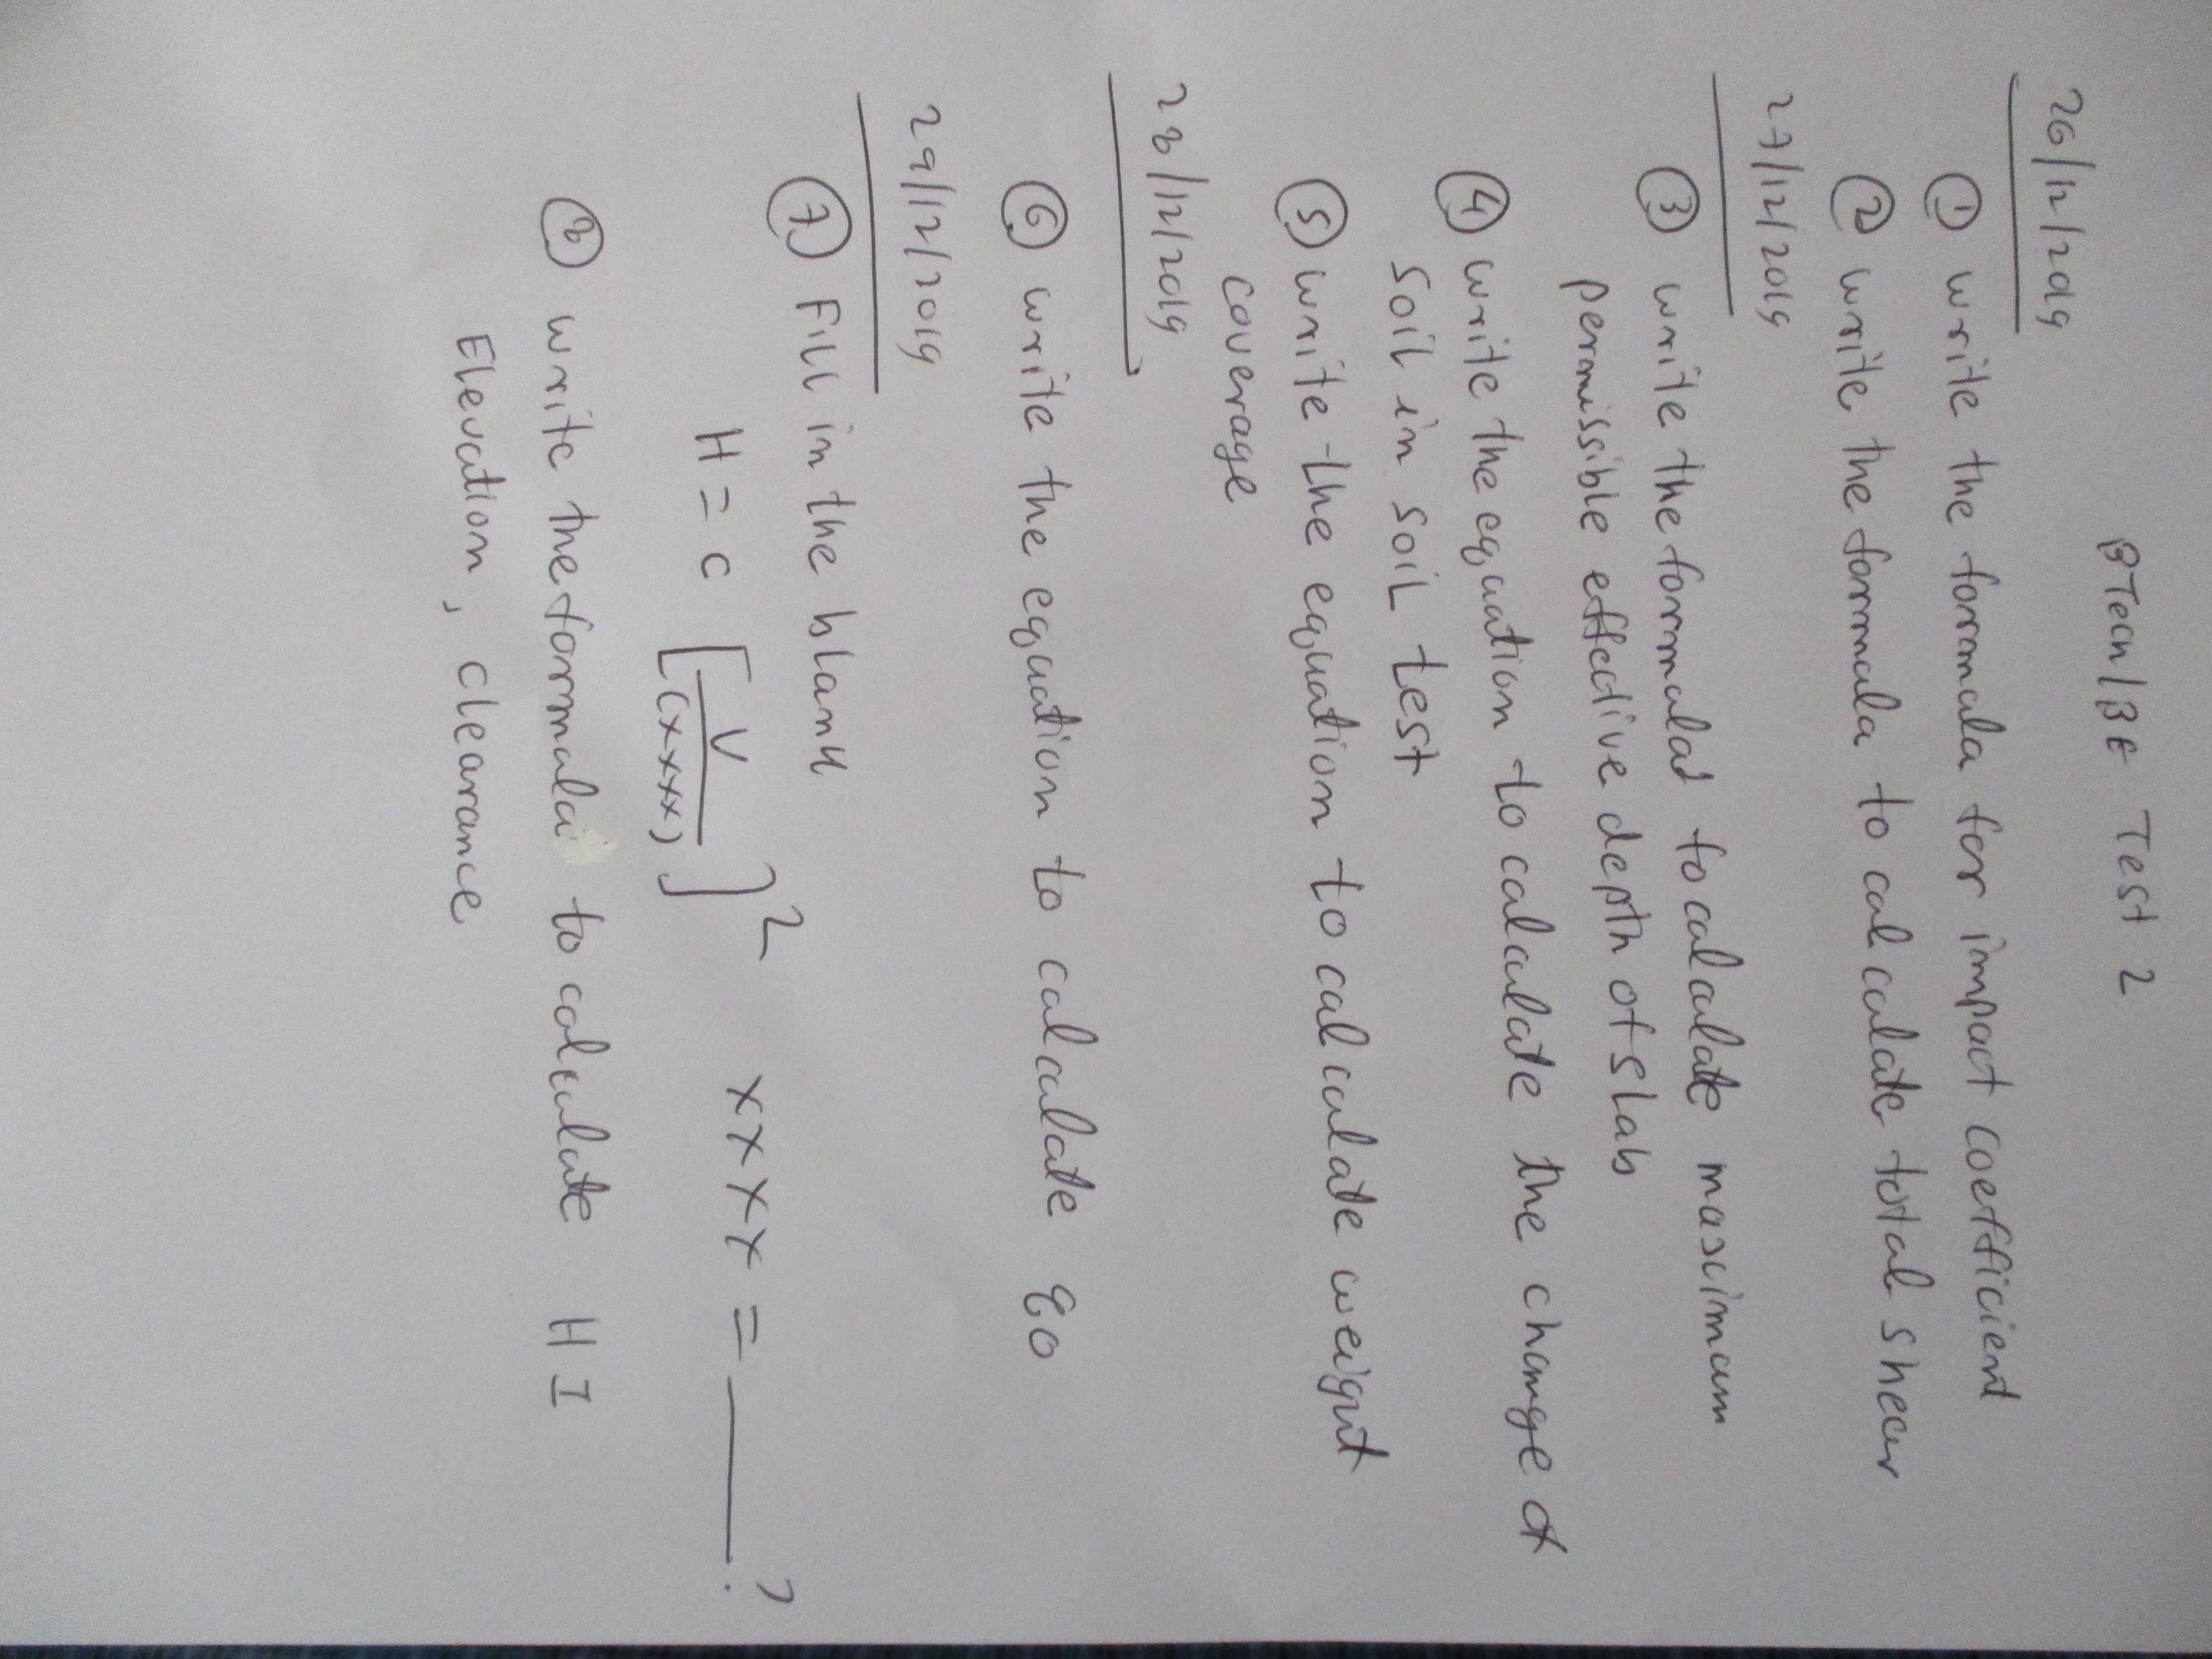 BTech/BE Test 2
26/12/2019
① write the formula for impact coefficient
② write the formula to calculate total shear
27/12/2019
③ write the formulat to calculate maximum
permissible effective depth of slab
④ write the equation to calculate the change of
soil in soil test
⑤ write the equation to calculate weight
coverage
28/12/2019
⑥ write the equation to calculate
29/12/2019
⑦ Fill in the blank
H = C [V/(xxxx)]² xxxx = ____?
⑧ write the formula to calculate HI
Elevation, clearance